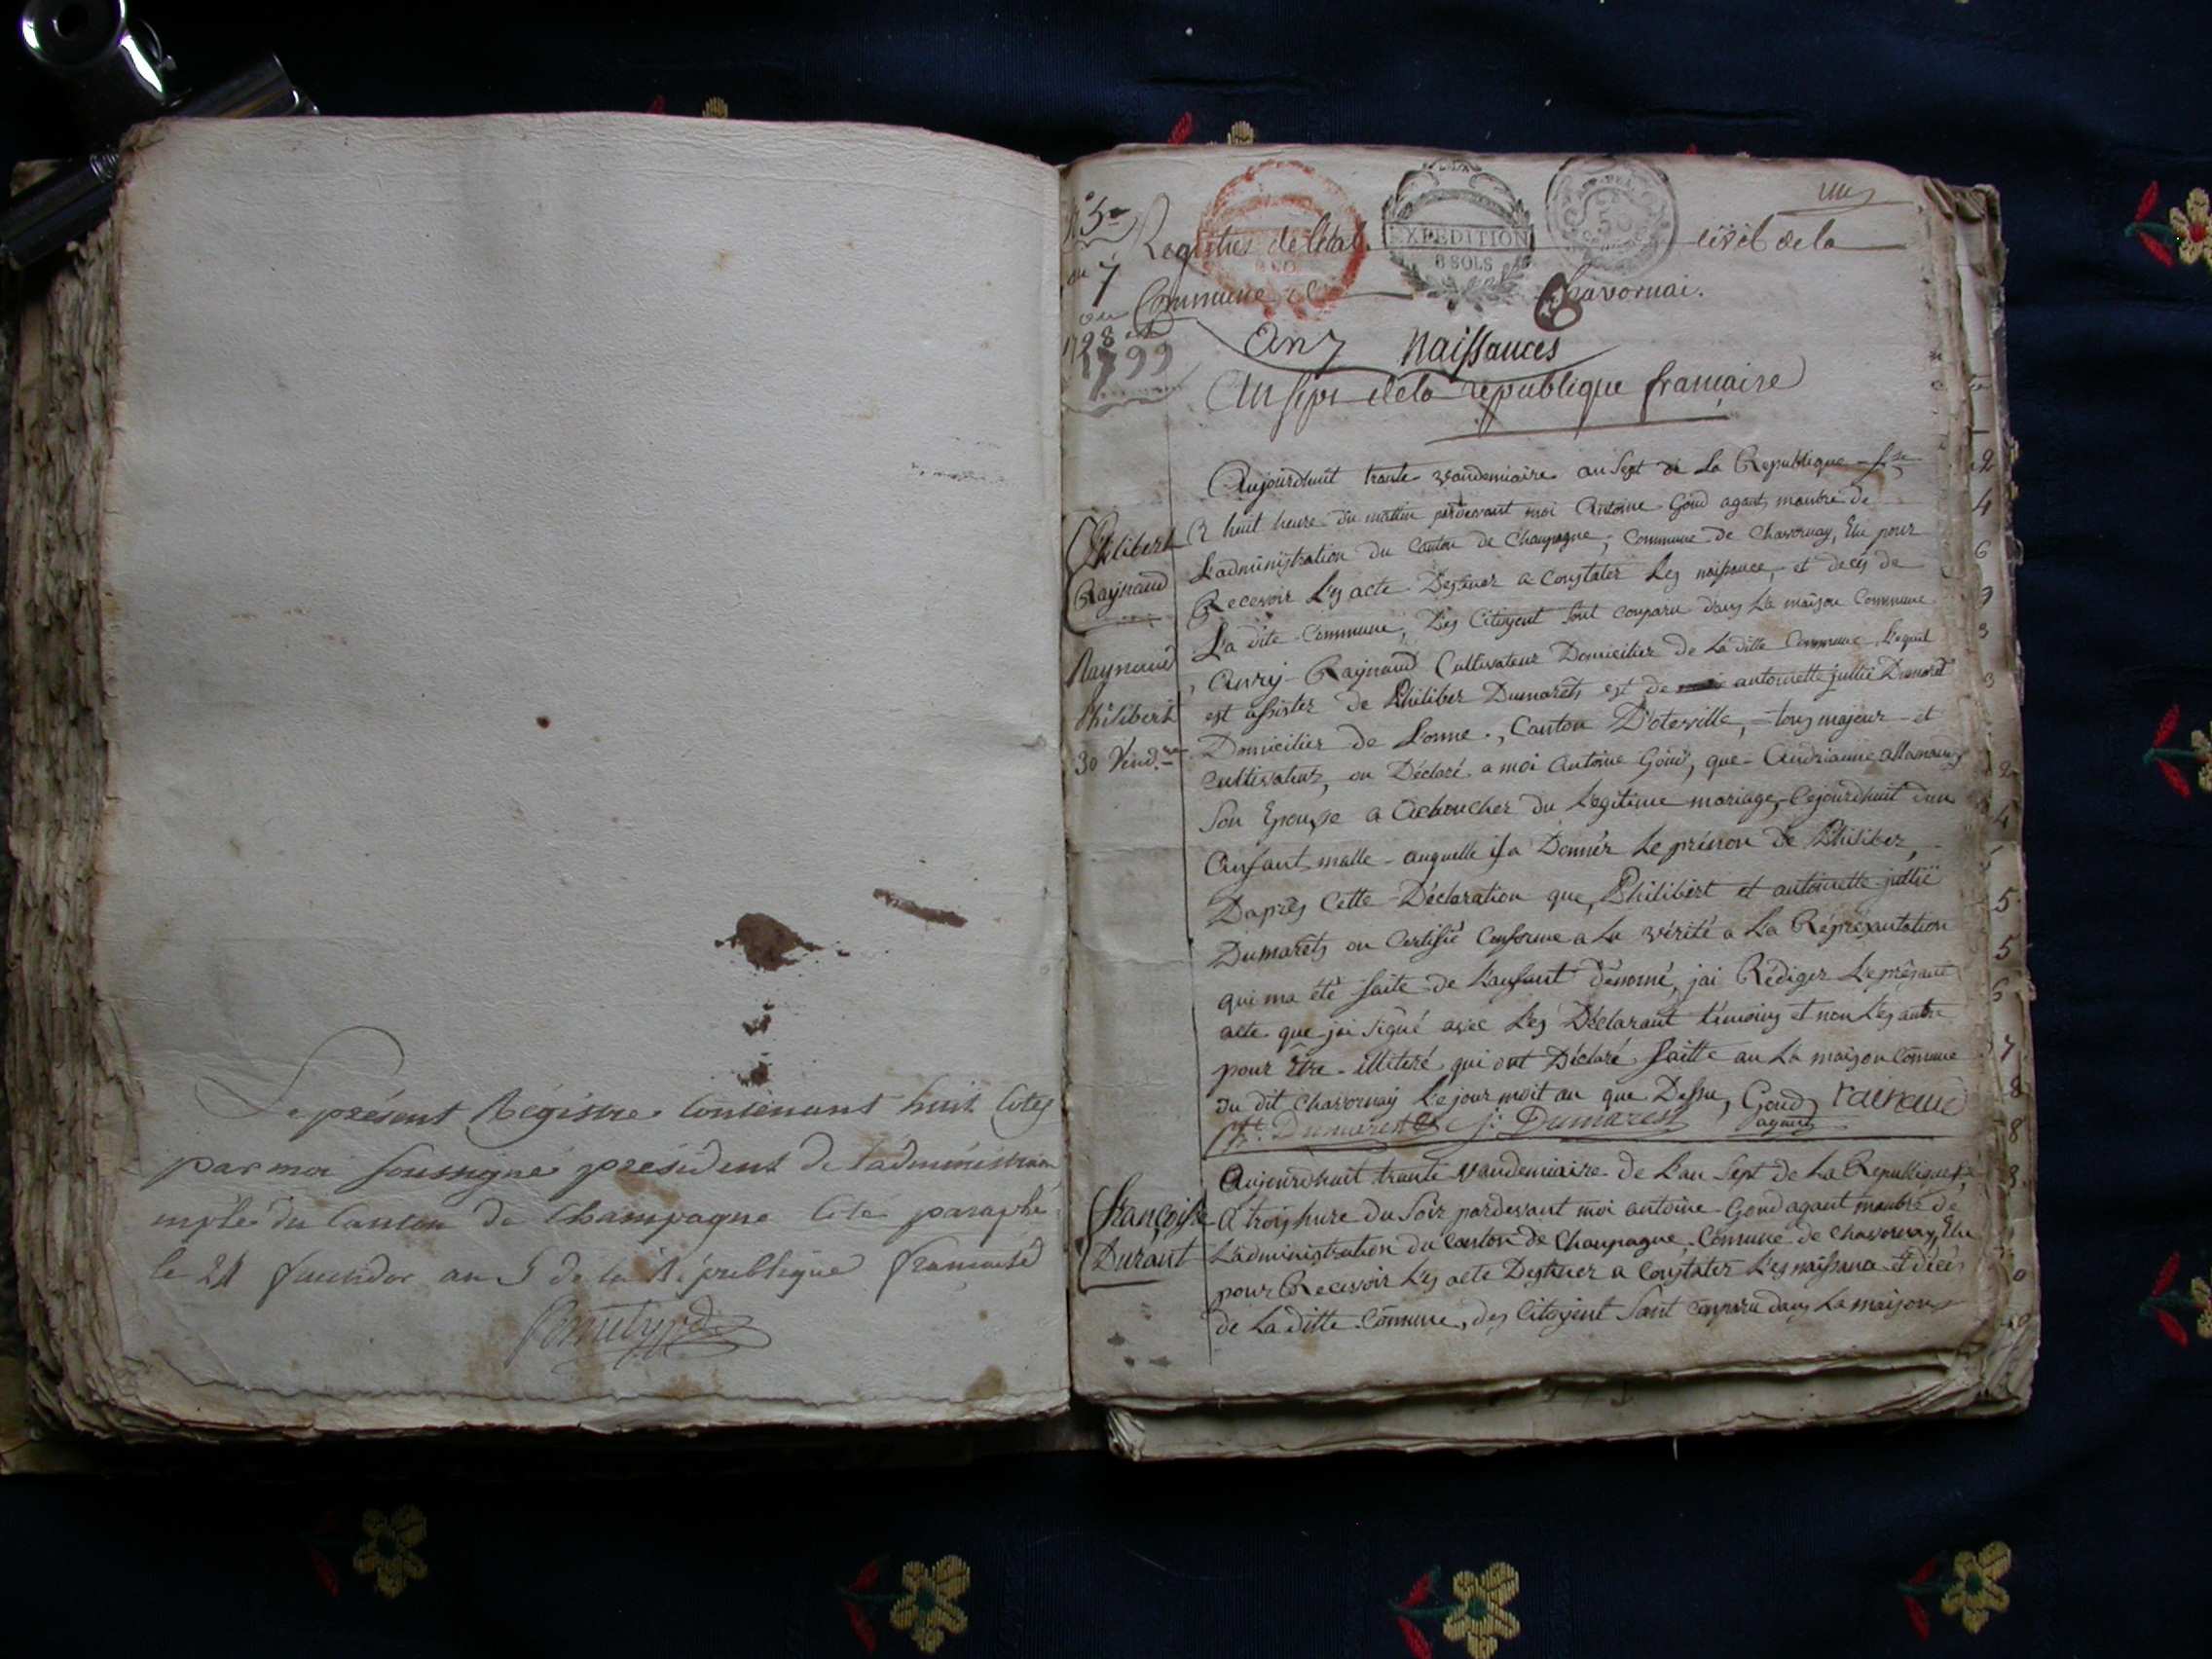 Le présent Registre Contenant huit Cotes
par moi soussigné président de l'administration
mple du Canton de Champagne Coté paraphé
le 24 an de la République francaise
N° 5
an 7
ou
1798 et
1799
un
Registres de l'état civil de la
EXPEDITION
8 SOLS
50
Commune de Chavornai.
an 7 Naissances
an sept de la republique francaise
Philibert
Raynaud
Raynaud
Philibert
30 Vend.re
Aujourdhuit trante vandemiaire an Sept de la Republique fse
a huit heure du matin pardevant moi Antoine Goud agant manbre de
L'administration du Canton de Champagne, Commune de Chavornay, Elu pour
Recevoir Les acte Destiner a Constater Les naissance, et deces de
La dite Commune, Des Citoyent Sont Conparu dans La maison Commune
Anry Raynaud Cultivateur Domicilier de La ditte Commune Lequel
est assister de Philiber Dumarets est de antoinette jullie Dumaret
Domicilier de Lonne, Canton D'oteville, tous majeur et
Cultivateur, on Déclaré a moi Antoine Goud, que Andrianne allemand
Son Epouse a Acboucher du Legitime mariage, Cejourdhuit dun
Anfant malle auquelle il a Donner Le prénon de Philiber,
Daprès Cette Déclaration que, Philibert et antoinette jullie
Dumarets on Certifié Conforme a La vérité a La Réprésantation
qui ma été faite de Lanfant dénomé, jai Rédiger Le présant
acte que jai Signé avec Les Déclarant témoins et non Les autre
pour Être illiteré qui ont Déclaré faitte au La maison Comune
du dit Chavornay Le jour moit an que Dessu, Goud raynaud
agant
pt. Dumarest j. Dumarest
françoise
Durant
Aujourdhuit trante vandemiaire de L'an Sept de La Republique fse
A trois hure du Soir pardevant moi antoine Goud agant manbre de
L'administration du Canton de Champagne, Comune de Chavornay, Elu
pour Recevoir Les acte Destiner a Constater Les naissance et décès
de La ditte Comune, des Citoyent Sont Conparu dans La maison